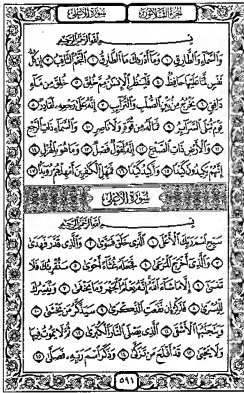 الجزء الثلاثون سورة الأعلى
بِسْمِ اللَّهِ الرَّحْمَٰنِ الرَّحِيمِ
وَالسَّمَاءِ وَالطَّارِقِ ١ وَمَا أَدْرَاكَ مَا الطَّارِقُ ٢ النَّجْمُ الثَّاقِبُ ٣ إِن كُلُّ
نَفْسٍ لَّمَّا عَلَيْهَا حَافِظٌ ٤ فَلْيَنظُرِ الْإِنسَانُ مِمَّ خُلِقَ ٥ خُلِقَ مِن مَّاءٍ
دَافِقٍ ٦ يَخْرُجُ مِن بَيْنِ الصُّلْبِ وَالتَّرَائِبِ ٧ إِنَّهُ عَلَىٰ رَجْعِهِ لَقَادِرٌ ٨
يَوْمَ تُبْلَى السَّرَائِرُ ٩ فَمَا لَهُ مِن قُوَّةٍ وَلَا نَاصِرٍ ١٠ وَالسَّمَاءِ ذَاتِ الرَّجْعِ
١١ وَالْأَرْضِ ذَاتِ الصَّدْعِ ١٢ إِنَّهُ لَقَوْلٌ فَصْلٌ ١٣ وَمَا هُوَ بِالْهَزْلِ ١٤
إِنَّهُمْ يَكِيدُونَ كَيْدًا ١٥ وَأَكِيدُ كَيْدًا ١٦ فَمَهِّلِ الْكَافِرِينَ أَمْهِلْهُمْ رُوَيْدًا ١٧
سُورَةُ الأَعْلَىٰ
بِسْمِ اللَّهِ الرَّحْمَٰنِ الرَّحِيمِ
سَبِّحِ اسْمَ رَبِّكَ الْأَعْلَى ١ الَّذِي خَلَقَ فَسَوَّىٰ ٢ وَالَّذِي قَدَّرَ فَهَدَىٰ
٣ وَالَّذِي أَخْرَجَ الْمَرْعَىٰ ٤ فَجَعَلَهُ غُثَاءً أَحْوَىٰ ٥ سَنُقْرِئُكَ فَلَا
تَنسَىٰ ٦ إِلَّا مَا شَاءَ اللَّهُ إِنَّهُ يَعْلَمُ الْجَهْرَ وَمَا يَخْفَىٰ ٧ وَنُيَسِّرُكَ
لِلْيُسْرَىٰ ٨ فَذَكِّرْ إِن نَّفَعَتِ الذِّكْرَىٰ ٩ سَيَذَّكَّرُ مَن يَخْشَىٰ ١٠
وَيَتَجَنَّبُهَا الْأَشْقَى ١١ الَّذِي يَصْلَى النَّارَ الْكُبْرَىٰ ١٢ ثُمَّ لَا يَمُوتُ فِيهَا
وَلَا يَحْيَىٰ ١٣ قَدْ أَفْلَحَ مَن تَزَكَّىٰ ١٤ وَذَكَرَ اسْمَ رَبِّهِ فَصَلَّىٰ ١٥
٥٩١